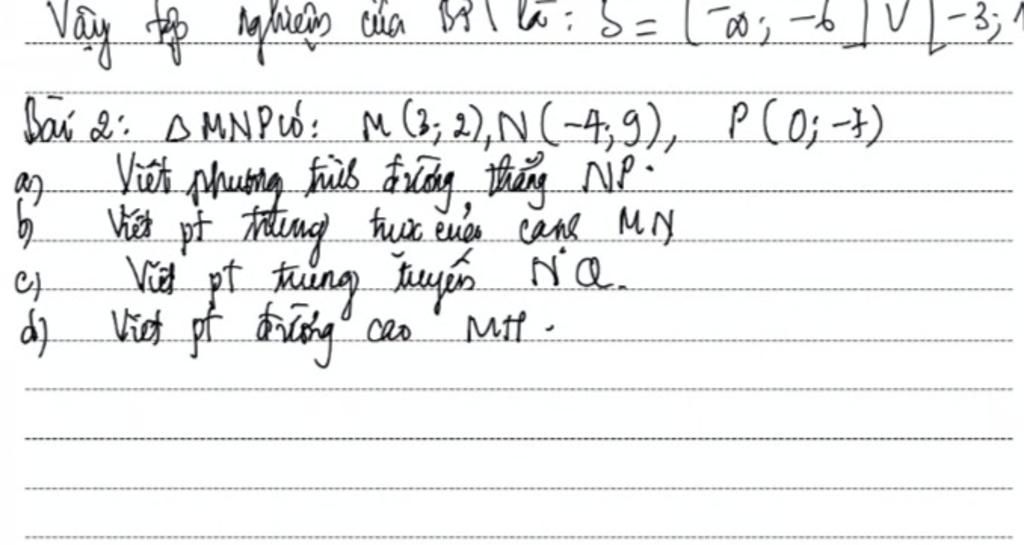 Vậy tập nghiệm của BPT là: S = [-∞; -6] ∪ [-3; 1
Bài 2: △MNP có: M(3; 2), N(-4; 9), P(0; -7)
a) Viết phương trình đường thẳng NP.
b) Viết pt trung trực của cạnh MN
c) Viết pt trung tuyến NQ.
d) Viết pt đường cao MH.